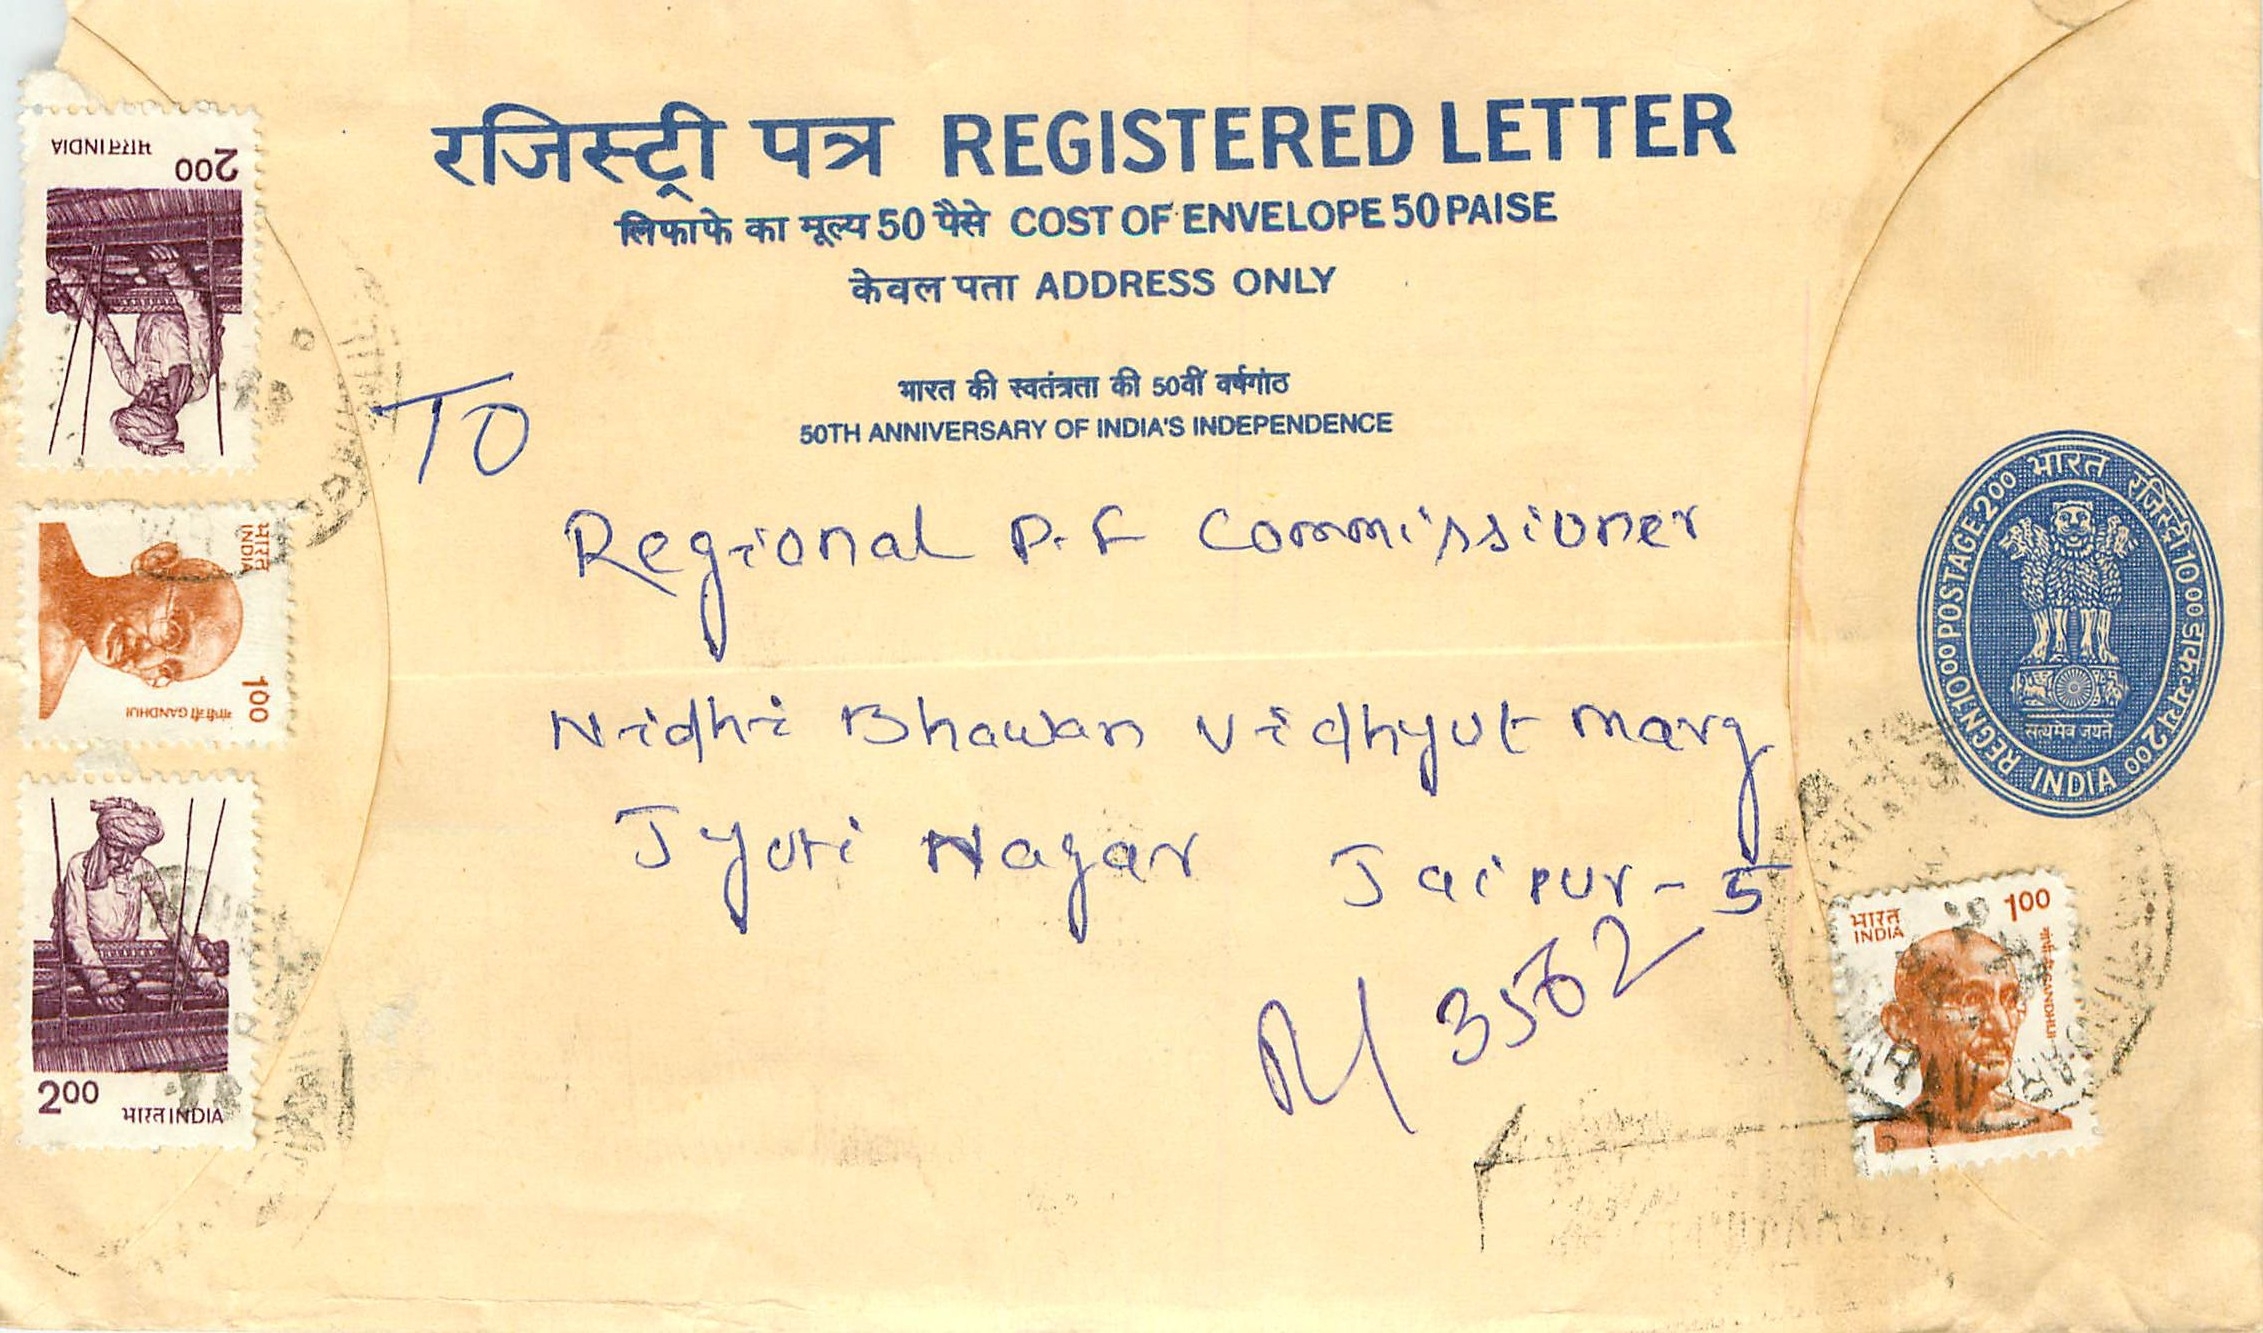 रजिस्ट्री पत्र REGISTERED LETTER
लिफाफे का मूल्य 50 पैसे COST OF ENVELOPE 50 PAISE
केवल पता ADDRESS ONLY
भारत की स्वतंत्रता की 50वीं वर्षगांठ
50TH ANNIVERSARY OF INDIA'S INDEPENDENCE
TO
Regional P.F Commissioner
Nidhi Bhawan Vidhyut Marg
Jyoti Nagar Jaipur-5
R/ 3562
भारत INDIA 2.00
भारत INDIA
1.00
गांधी जी GANDHIJI
2.00
भारत INDIA
भारत रजिस्ट्री 1000 डाक व्यय 200
REGN 1000 POSTAGE 200
सत्यमेव जयते
INDIA
भारत INDIA
1.00
गांधी जी GANDHIJI